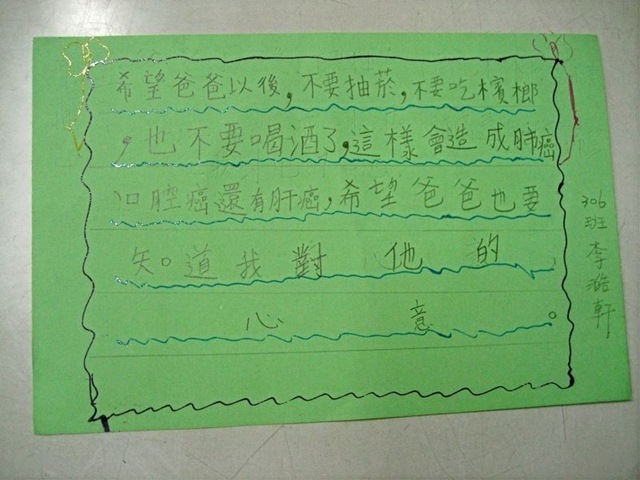 希望爸爸以後,不要抽菸,不要吃檳榔
,也不要喝酒了,這樣會造成肺癌
口腔癌還有肝癌,希望爸爸也要
知道我對他的
心意。
306班李浩軒